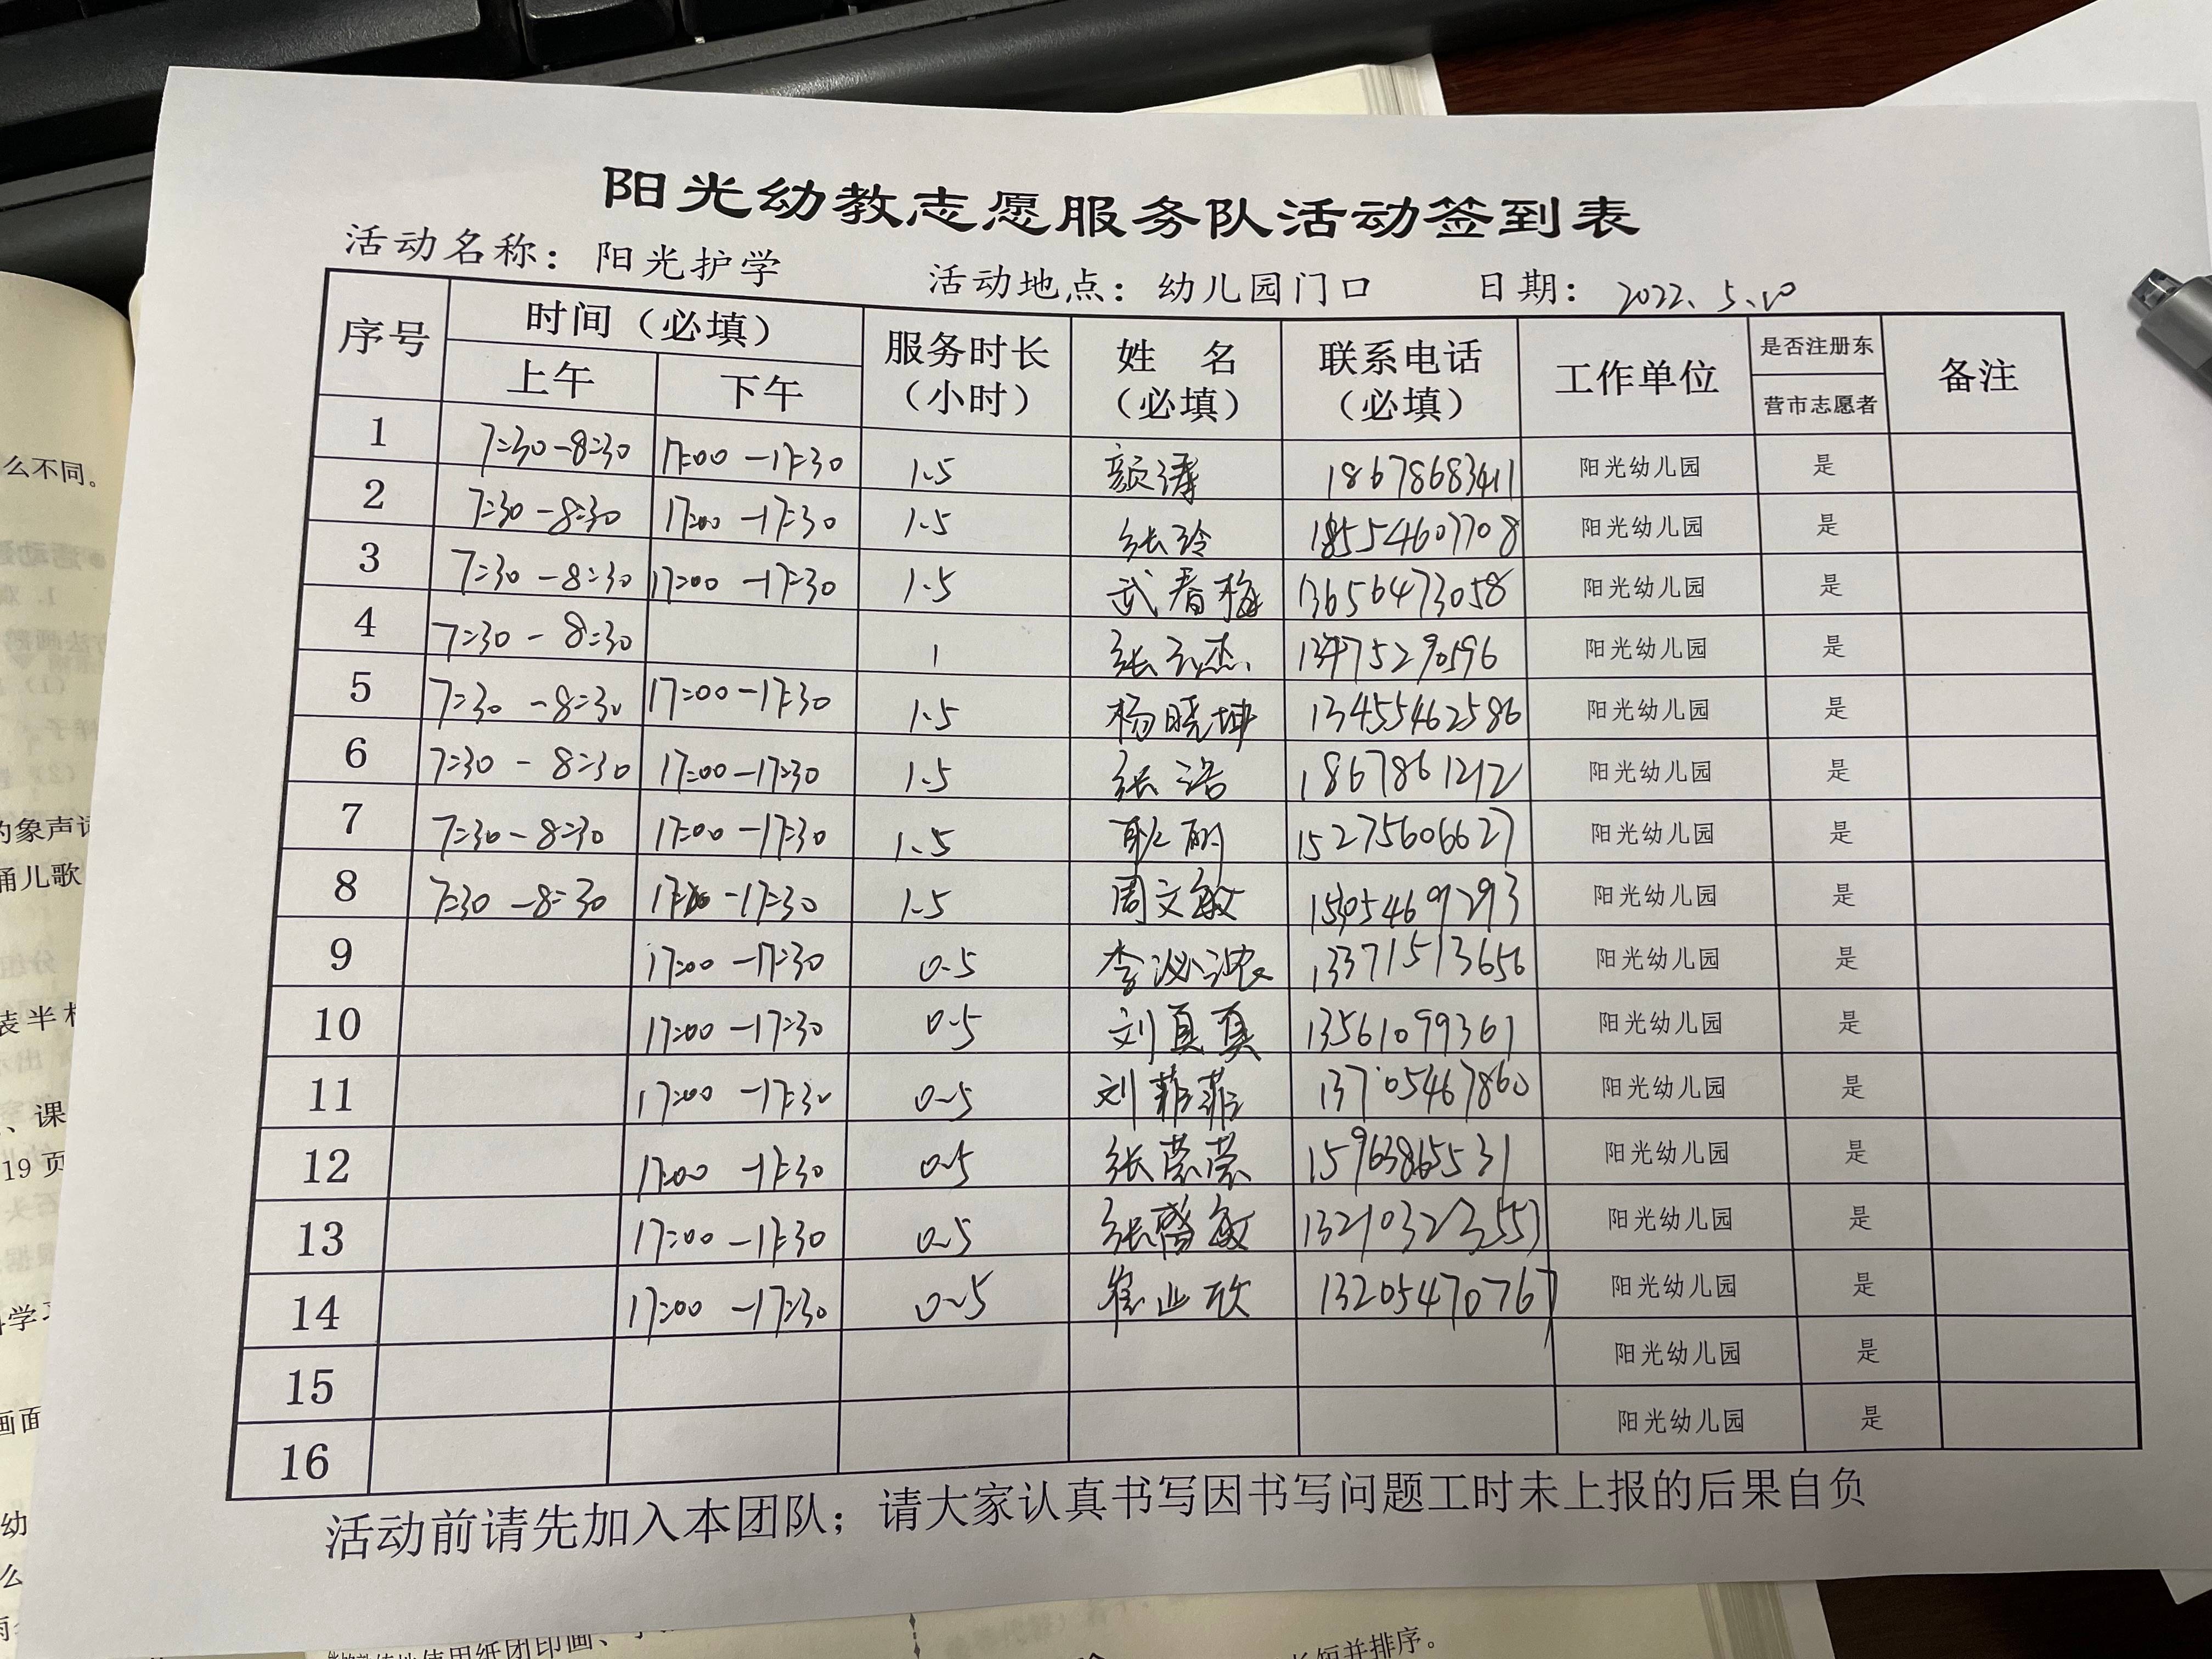 阳光幼教志愿服务队活动签到表
活动名称：阳光护学 活动地点：幼儿园门口 日期：2022.5.10
序号 时间（必填） 服务时长（小时） 姓 名（必填） 联系电话（必填） 工作单位 是否注册东营市志愿者 备注
上午 下午
1 7:30-8:30 17:00-17:30 1.5 颜涛 18678683411 阳光幼儿园 是
2 7:30-8:30 17:00-17:30 1.5 张玲 18554607708 阳光幼儿园 是
3 7:30-8:30 17:00-17:30 1.5 武春梅 13656473058 阳光幼儿园 是
4 7:30-8:30 1 张 杰 13475290596 阳光幼儿园 是
5 7:30-8:30 17:00-17:30 1.5 杨晓坤 13455462586 阳光幼儿园 是
6 7:30-8:30 17:00-17:30 1.5 张洁 1867861212 阳光幼儿园 是
7 7:30-8:30 17:00-17:30 1.5 耿 15275606627 阳光幼儿园 是
8 7:30-8:30 17:00-17:30 1.5 周文敏 15054691293 阳光幼儿园 是
9 17:00-17:30 0.5 李泌浓 13371513656 阳光幼儿园 是
10 17:00-17:30 0.5 刘真真 13561099361 阳光幼儿园 是
11 17:00-17:30 0.5 刘菲菲 13705467860 阳光幼儿园 是
12 17:00-17:30 0.5 张荣荣 15963865531 阳光幼儿园 是
13 17:00-17:30 0.5 张 敏 13210323557 阳光幼儿园 是
14 17:00-17:30 0.5 崔 欣 13205470767 阳光幼儿园 是
15 阳光幼儿园 是
16 阳光幼儿园 是
活动前请先加入本团队；请大家认真书写因书写问题工时未上报的后果自负
么不同。
象声词
诵儿歌
装半
、课
19页
画面
幼
并排序。